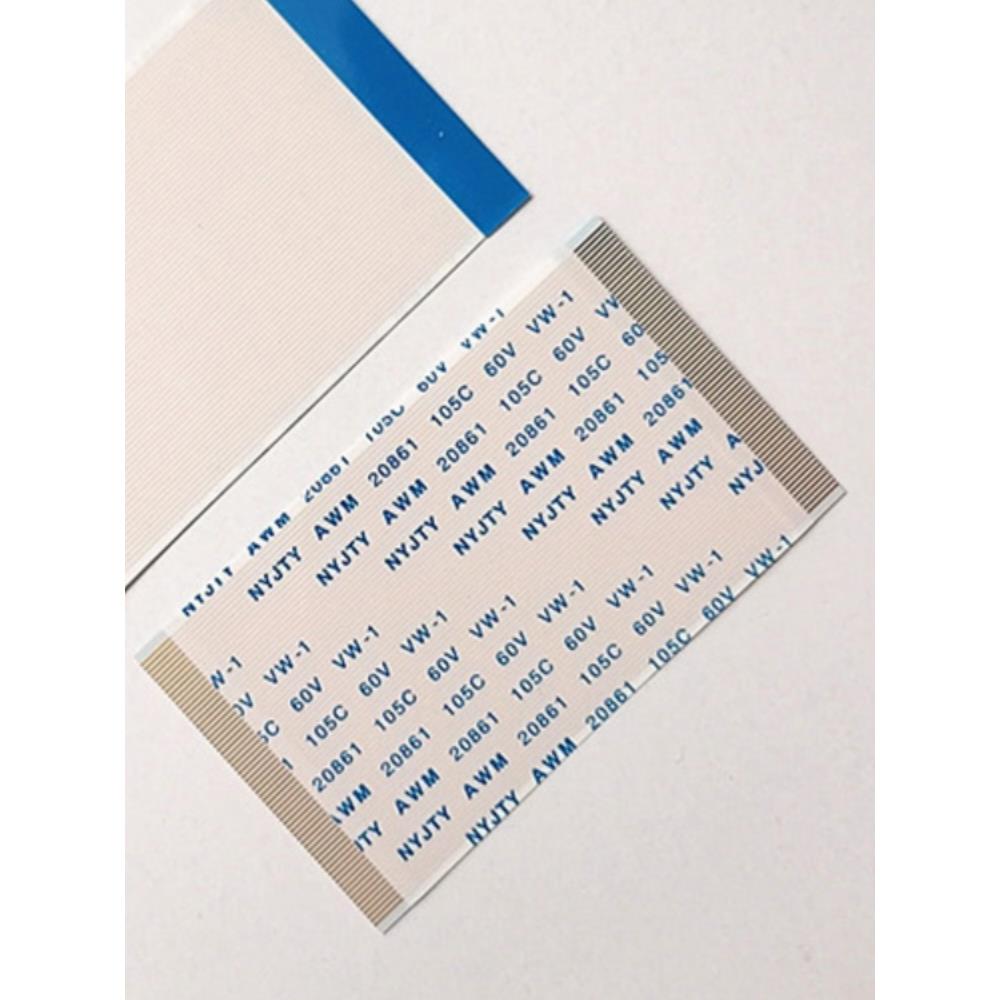 NYJTY AWM 20861 105C 60V VW-1
NYJTY AWM 20861 105C 60V VW-1
NYJTY AWM 20861 105C 60V
NYJTY AWM 20861 105C 60
NYJTY AWM 20861 105
NYJTY AWM 20861
NYJTY AWM
NYJTY A
NYJ
W-1
0V VW-1
5C 60V VW-1
1 105C 60V VW-1
20861 105C 60V VW-1
AWM 20861 105C 60V VW-1
JTY AWM 20861 105C 60V VW-1
NYJTY AWM 20861 105C 60V VW-1
NYJTY AWM 20861 105C 60V VW-1